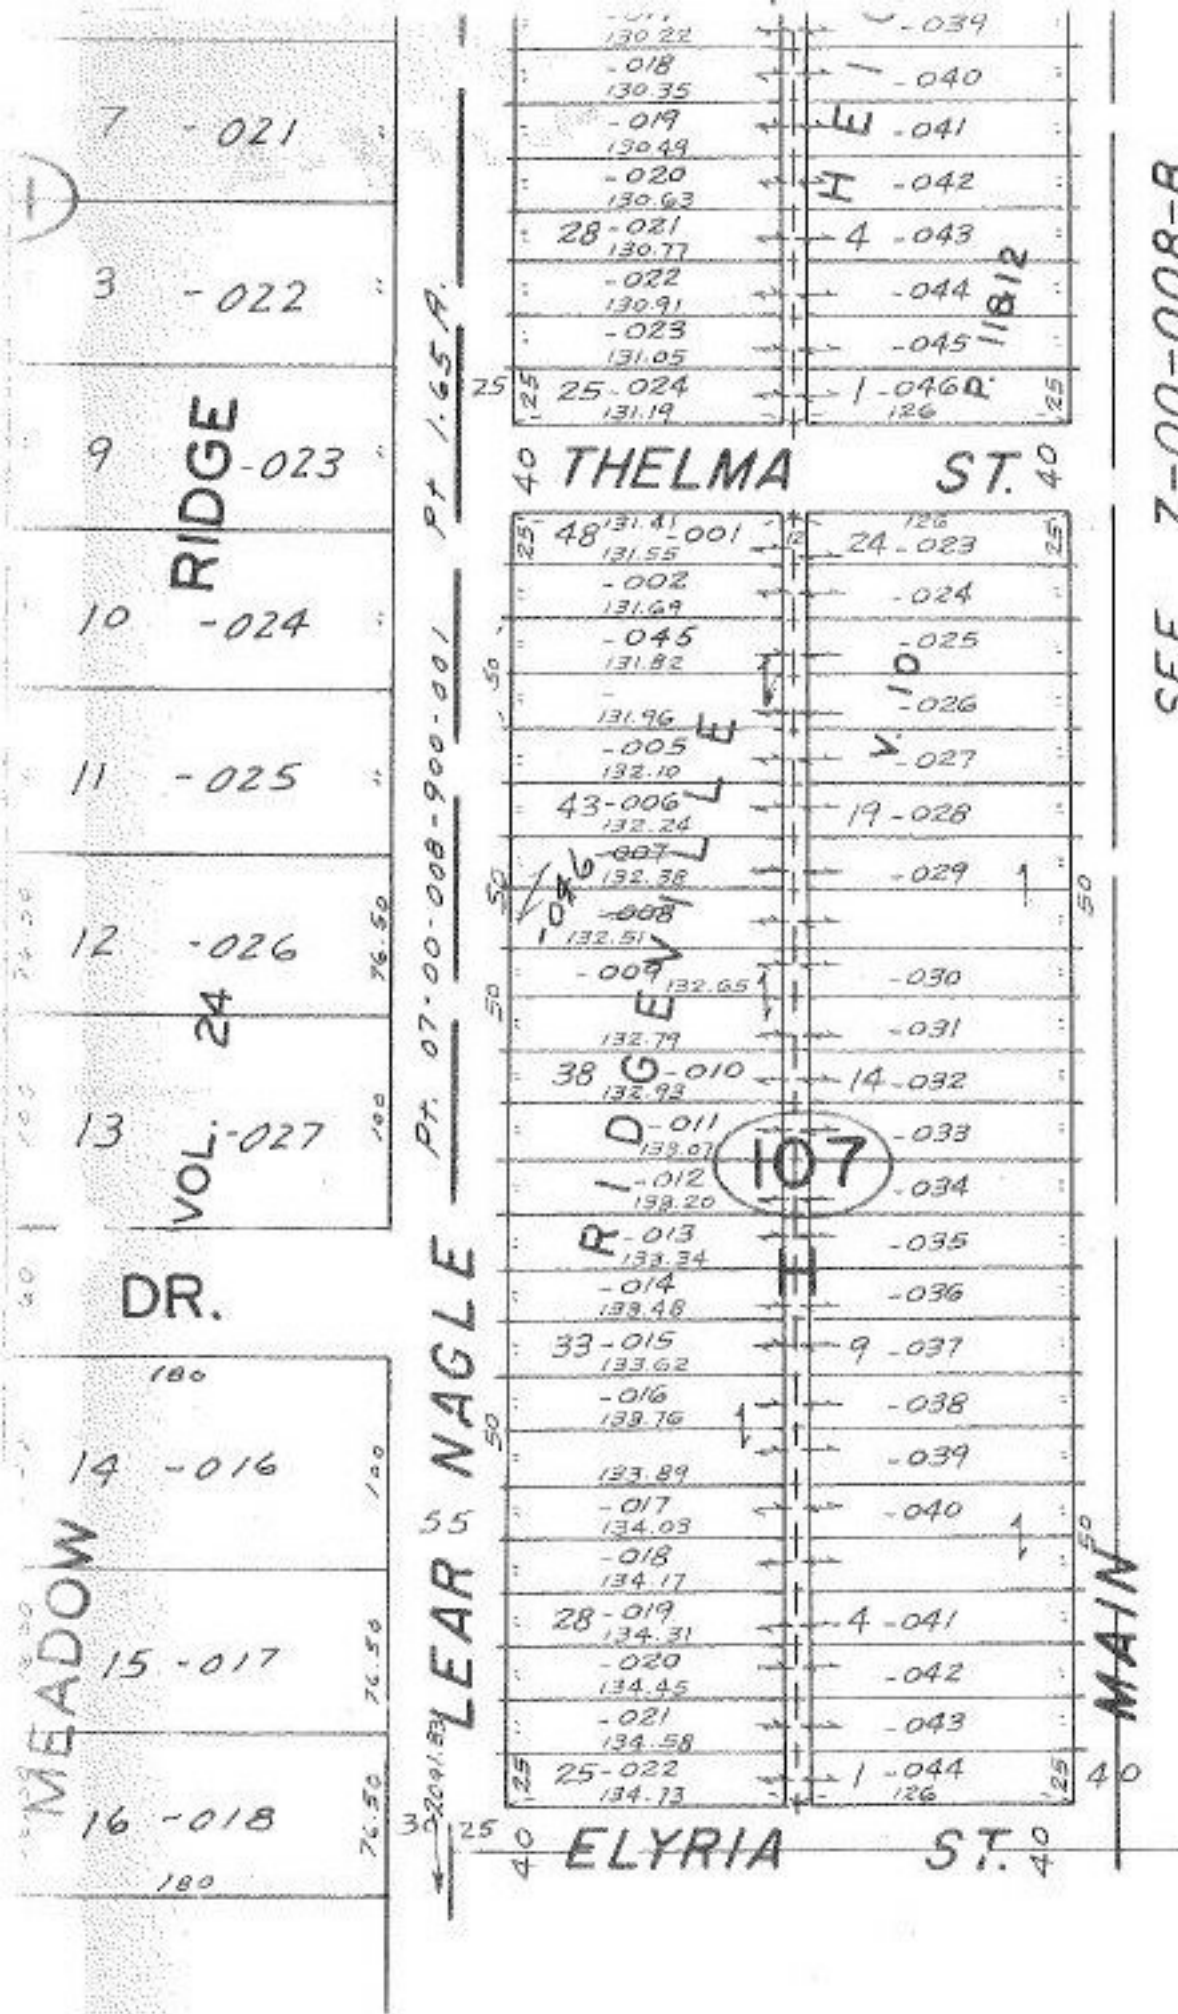 7 -021
3 -022
9 -023
10 -024
11 -025
12 -026
76.50
13 -027
100
RIDGE
VOL. 24
DR.
60
180
14 -016
100
15 -017
76.50
16 -018
76.50
180
MEADOW
Pt 1.65 A.
Pt. 07-00-008-900-001
LEAR NAGLE
55
2091.83
30
25
25
130.22
-018
130.35
-019
130.49
-020
130.63
28-021
130.77
-022
130.91
-023
131.05
25-024
131.19
25
-039
-040
-041
-042
4 -043
-044
-045
1 -046
126
25
HEI
P. 11&12
40 THELMA ST. 40
131.41
48 -001
131.55
25
-002
131.69
-045
131.82
50
131.96
-005
132.10
43-006
132.24
-007
132.38
-046
50
-008
132.51
-009
132.65
50
132.79
38 -010
132.93
-011
133.07
-012
133.20
-013
133.34
-014
133.48
33-015
133.62
-016
133.76
50
133.89
-017
134.03
-018
134.17
28-019
134.31
-020
134.45
-021
134.58
25-022
134.73
25
RIDGEVILLE
12
126
24-023
25
-024
-025
-026
-027
19-028
-029
50
-030
-031
14-032
-033
-034
-035
-036
9 -037
-038
-039
-040
50
4 -041
-042
-043
1 -044
126
25
V. 10
107
H
40 ELYRIA ST. 40
MAIN
40
SEE 7-00-008-B